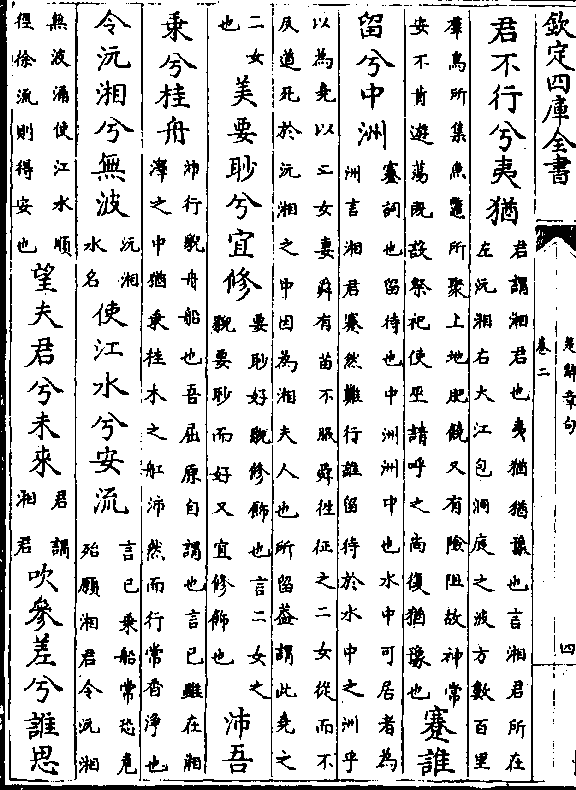 欽定四庫全書
楚辭章句
卷二
四
君不行兮夷猶
君謂湘君也夷猶猶豫也言湘君所在
左沅湘右大江包洞庭之波方數百里
羣鳥所集魚鼈所聚土地肥饒又有險阻故神常
安不肯遊蕩既設祭祀使巫請呼之尚復猶豫也
蹇誰
留兮中洲
蹇詞也留待也中洲洲中也水中可居者為
洲言湘君蹇然難行誰留待於水中之洲乎
以為堯以二女妻舜有苗不服舜徃征之二女從而不
反道死於沅湘之中因為湘夫人也所留蓋謂此堯之
二女
也
美要眇兮宜修
要眇好貌修飾也言二女之
貌要眇而好又宜修飾也
沛吾
乘兮桂舟
沛行貌舟船也吾屈原自謂也言已雖在湖
澤之中猶乘桂木之舡沛然而行常香淨也
令沅湘兮無波
沅湘
水名
使江水兮安流
言已乘船常恐危
殆願湘君令沅湘
無波涌使江水順
徑徐流則得安也
望夫君兮未來
君謂
湘君
吹參差兮誰思